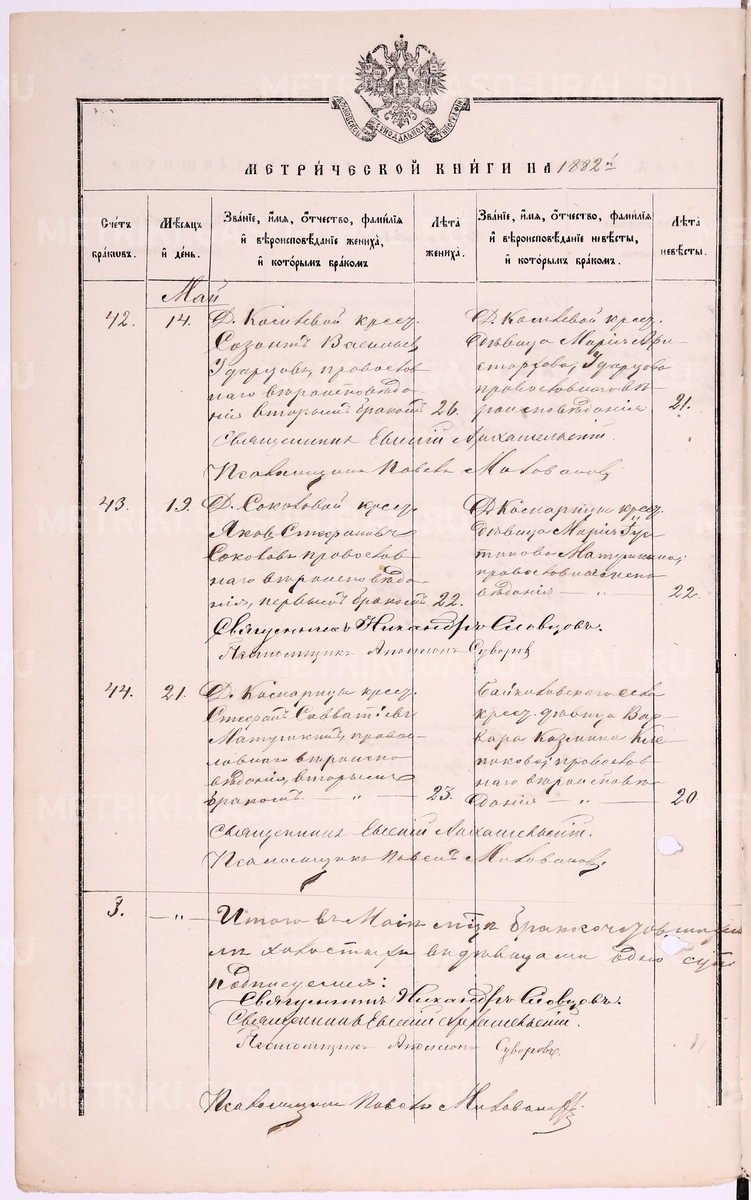 МЕТРИ́ЧЕСКОЙ КНИ́ГИ НА 1882 г.
Сче́тъ бра́ковъ.
Мѣ́сяцъ и҆ де́нь.
Зва́нїе, и҆́мя, ѻ҆́тчество, фами́лїя и҆ вѣроисповѣ́данїе жениха̀, и҆ кото́рымъ бра́комъ
Лѣ́та жениха̀.
Зва́нїе, и҆́мя, ѻ҆́тчество, фами́лїя и҆ вѣроисповѣ́данїе невѣ́сты, и҆ кото́рымъ бра́комъ.
Лѣ́та невѣ́сты.
Май
42.
14.
Д. Косиевой крест.
Созонтъ Васильев
Ударцовъ, православ
наго вѣроисповѣда
нія вторымъ бракомъ
26.
Д. Косиевой крест.
дѣвица Марія Ари
стархова Ударцова
православнаго вѣ
роисповѣданія
21.
Священникъ Евгеній Архангельскій.
Псаломщикъ Павелъ Миловановъ
43.
19.
Д. Соколовой крест.
Яковъ Стефановъ
Соколовъ православ
наго вѣроисповѣда
нія, первымъ бракомъ
22.
крест.
дѣвица Марія Іус
тинова Матушкина,
22
Священникъ Никандръ Словцовъ.
Псаломщикъ Аполлонъ Суворовъ
44.
21.
крест.
Стефанъ Савватіевъ
Матушкинъ, правос
лавнаго вѣроиспо
вѣданія, вторымъ
бракомъ — „ —
23.
Байкаловскаго села
крест. дѣвица Вар
вара Козмина
православ
наго вѣроисповѣ
данія — „ —
20
Священникъ Евгеній Архангельскій.
Псаломщикъ Павелъ Миловановъ.
3.
— „ —
Итого въ Маѣ м-цѣ
холостыхъ дѣвицами
Священникъ Никандръ Словцовъ.
Священникъ Евгеній Архангельскій.
Псаломщикъ Аполлонъ Суворовъ.
Псаломщикъ Павелъ Миловановъ